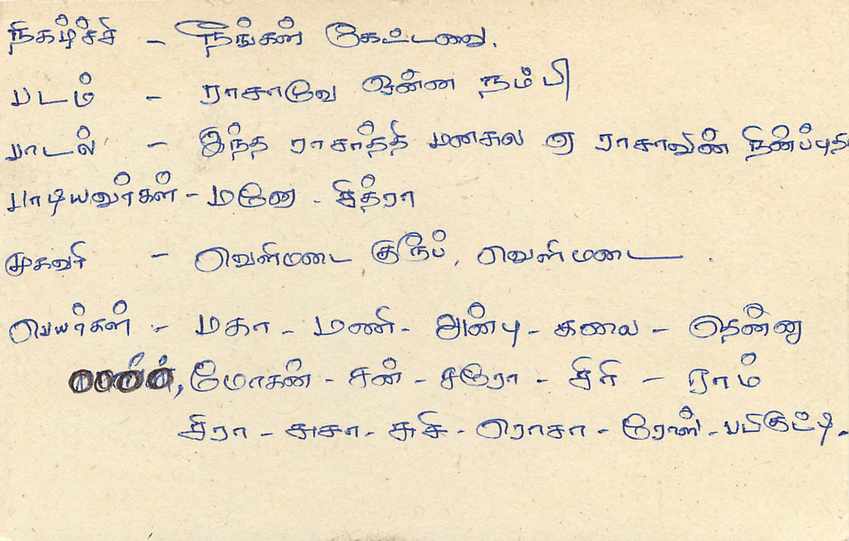 நிகழ்ச்சி - நீங்கள் கேட்டவை.
படம் - ராசாவே உன்ன நம்பி
பாடல் - இந்த ராசாத்தி மனசுல ஏ ராசாவின் நினப்புத
பாடியவர்கள் - மனோ - சித்ரா
முகவரி - வெளிமடை குரூப், வெளிமடை.
பெயர்கள் :- மகா - மணி - அன்பு - கலை - தென்னு
மோகன் - சன் - சரோ - சிரி - ராம்
சிரா - சுசா - சுசி - ரொசா - ரோஸ் - பபிகுட்டி.